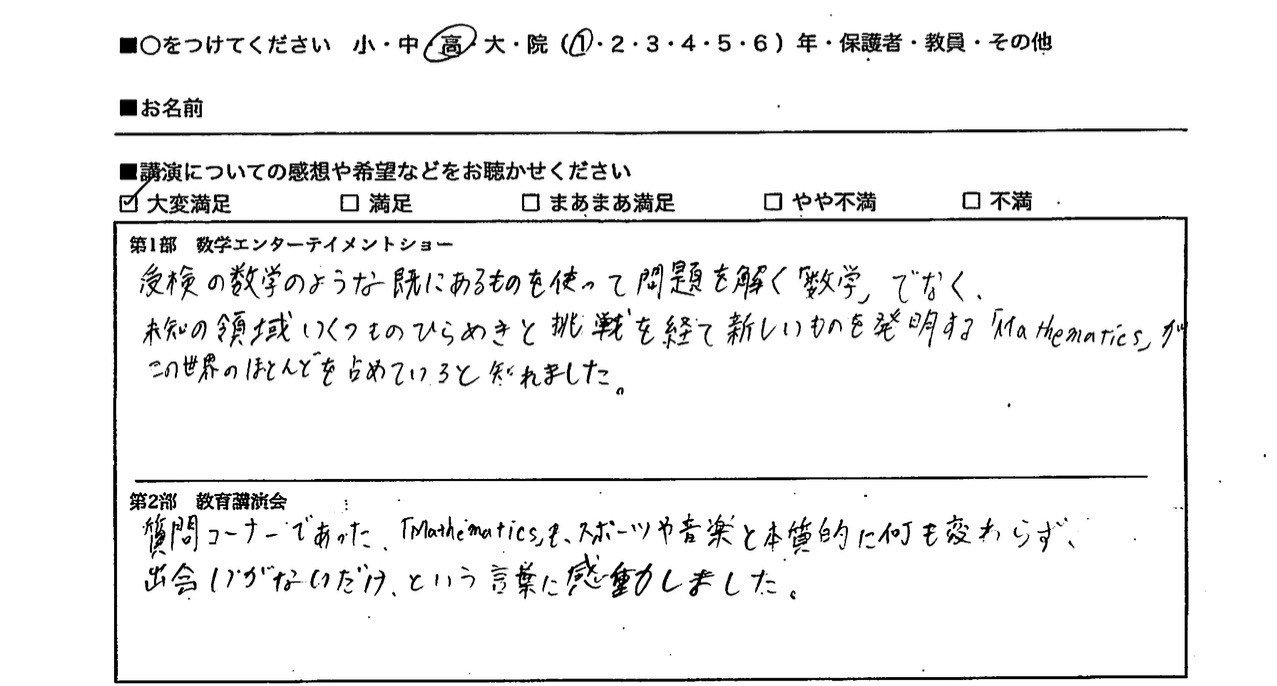 ■○をつけてください 小・中・高・大・院(1・2・3・4・5・6)年・保護者・教員・その他
■お名前
■講演についての感想や希望などをお聴かせください
☑ 大変満足 □ 満足 □ まあまあ満足 □ やや不満 □ 不満
第1部 数学エンターテイメントショー
受検の数学のような既にあるものを使って問題を解く「数学」でなく、
未知の領域いくつものひらめきと挑戦を経て新しいものを発明する「Mathematics」が
この世界のほとんどを占めていると知れました。
第2部 教育講演会
質問コーナーであった、「Mathematics」も、スポーツや音楽と本質的に何も変わらず、
出会いがないだけ、という言葉に感動しました。